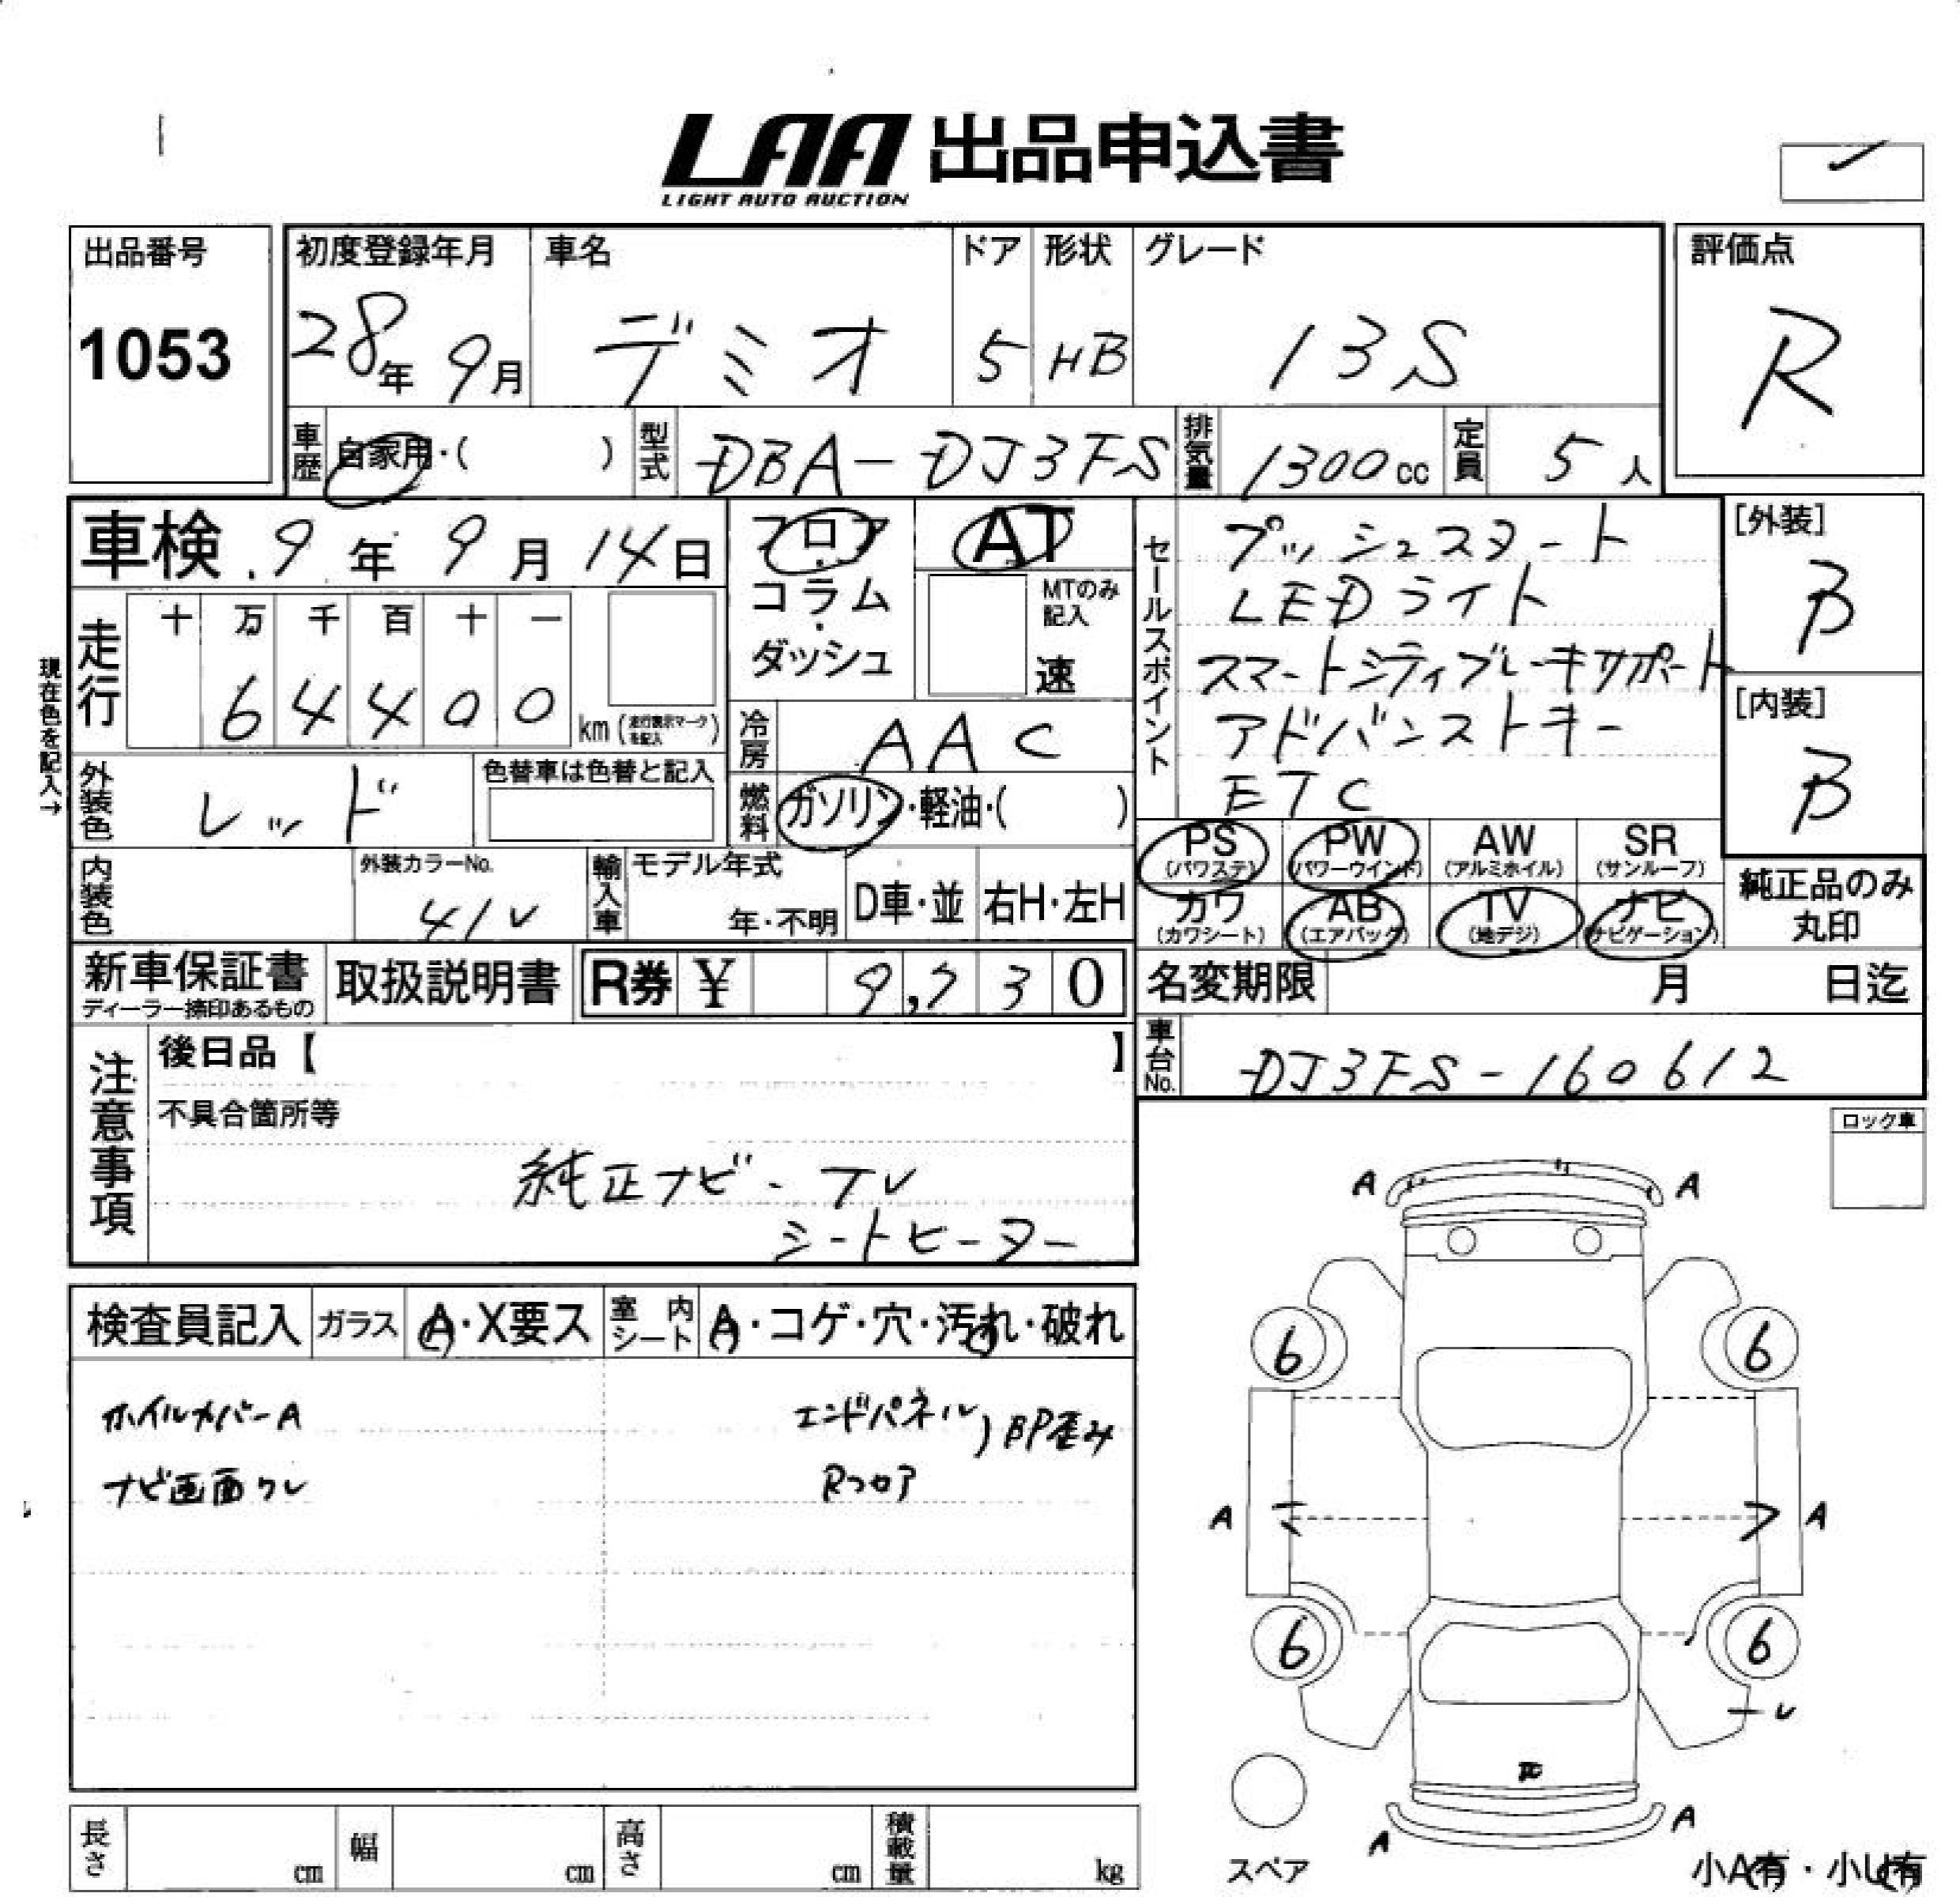 LAA 出品申込書
LIGHT AUTO AUCTION
出品番号
1053
初度登録年月
28年 9月
車名
デミオ
ドア
5
形状
HB
グレード
13S
評価点
R
車歴 自家用・( )
型式 DBA-DJ3FS
排気量 1300cc
定員 5人
車検 9年 9月 14日
フロア・コラム・ダッシュ
AT
MTのみ記入
速
セールスポイント
プッシュスタート
LEDライト
スマートシティブレーキサポート
アドバンストキー
ETC
[外装]
B
[内装]
B
現在色を記入→
走行
十 万 千 百 十 一
6 4 4 0 0
km (走行表示マークを記入)
冷房 AAC
外装色 レッド
色替車は色替と記入
燃料 ガソリン・軽油・( )
PS (パワステ)
PW (パワーウインド)
AW (アルミホイル)
SR (サンルーフ)
カワ (カワシート)
AB (エアバック)
TV (地デジ)
ナビ (ナビゲーション)
純正品のみ丸印
内装色
外装カラーNo.
41V
輸入車
モデル年式
年・不明
D車・並
右H・左H
新車保証書
ディーラー捺印あるもの
取扱説明書
R券 ¥ 9,730
名変期限 月 日迄
車台No. DJ3FS-160612
注意事項
後日品【 】
不具合箇所等
純正ナビ・TV
シートヒーター
ロック車
検査員記入
ガラス A・X要ス
室内シート A・コゲ・穴・汚れ・破れ
ホイルカバーA
ナビ画面クレ
エンドパネル
Rフロア
BP歪み
A
A
6
6
A
A
6
6
A
A
スペア
小A有・小U有
長さ cm
幅 cm
高さ cm
積載量 kg